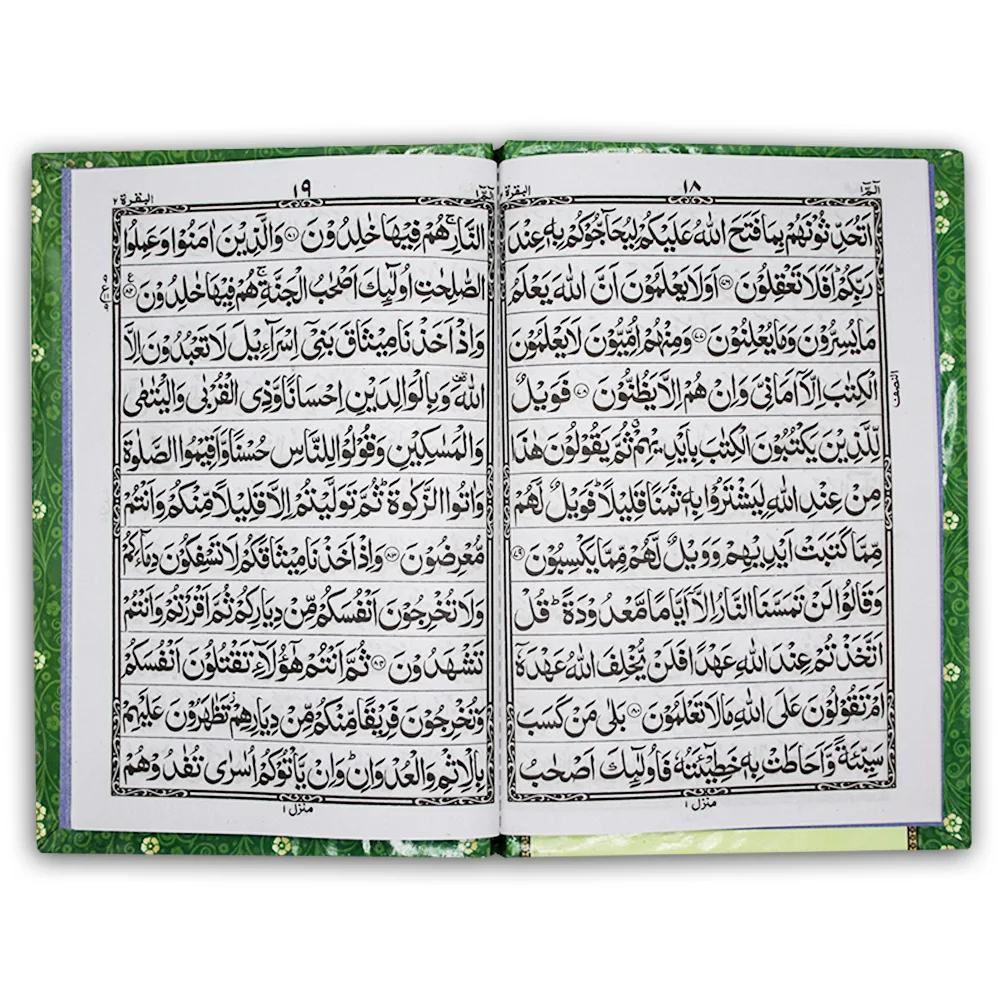 الٓمّٓ ١
١٨
البقرة ٢
اَتُحَدِّثُوْنَهُمْ بِمَا فَتَحَ اللّٰهُ عَلَيْكُمْ لِيُحَآجُّوْكُمْ بِهٖ عِنْدَ
رَبِّكُمْ ؕ اَفَلَا تَعْقِلُوْنَ ﴿۷۶﴾ اَوَلَا يَعْلَمُوْنَ اَنَّ اللّٰهَ يَعْلَمُ
مَا يُسِرُّوْنَ وَمَا يُعْلِنُوْنَ ﴿۷۷﴾ وَمِنْهُمْ اُمِّيُّوْنَ لَا يَعْلَمُوْنَ
الْكِتٰبَ اِلَّاۤ اَمَانِىَّ وَاِنْ هُمْ اِلَّا يَظُنُّوْنَ ﴿۷۸﴾ فَوَيْلٌ
لِّلَّذِيْنَ يَكْتُبُوْنَ الْكِتٰبَ بِاَيْدِيْهِمْ ۗ ثُمَّ يَقُوْلُوْنَ هٰذَا
مِنْ عِنْدِ اللّٰهِ لِيَشْتَرُوْا بِهٖ ثَمَنًا قَلِيْلًا ؕ فَوَيْلٌ لَّهُمْ
مِّمَّا كَتَبَتْ اَيْدِيْهِمْ وَوَيْلٌ لَّهُمْ مِّمَّا يَكْسِبُوْنَ ﴿۷۹﴾
وَقَالُوْا لَنْ تَمَسَّنَا النَّارُ اِلَّاۤ اَيَّامًا مَّعْدُوْدَةً ؕ قُلْ
اَتَّخَذْتُمْ عِنْدَ اللّٰهِ عَهْدًا فَلَنْ يُّخْلِفَ اللّٰهُ عَهْدَهٗۤ
اَمْ تَقُوْلُوْنَ عَلَى اللّٰهِ مَا لَا تَعْلَمُوْنَ ﴿۸۰﴾ بَلٰى مَنْ كَسَبَ
سَيِّئَةً وَّاَحَاطَتْ بِهٖ خَطِيْٓئَتُهٗ فَاُولٰٓئِكَ اَصْحٰبُ
النصف
منزل ١
الٓمّٓ ١
١٩
البقرة ٢
النَّارِ ۚ هُمْ فِيْهَا خٰلِدُوْنَ ﴿۸۱﴾ وَالَّذِيْنَ اٰمَنُوْا وَعَمِلُوا
الصّٰلِحٰتِ اُولٰٓئِكَ اَصْحٰبُ الْجَنَّةِ ۚ هُمْ فِيْهَا خٰلِدُوْنَ ﴿۸۲﴾ ع
وَاِذْ اَخَذْنَا مِيْثَاقَ بَنِىْۤ اِسْرَآءِيْلَ لَا تَعْبُدُوْنَ اِلَّا
اللّٰهَ وَبِالْوَالِدَيْنِ اِحْسَانًا وَّذِى الْقُرْبٰى وَالْيَتٰمٰى
وَالْمَسٰكِيْنِ وَقُوْلُوْا لِلنَّاسِ حُسْنًا وَّاَقِيْمُوا الصَّلٰوةَ
وَاٰتُوا الزَّكٰوةَ ؕ ثُمَّ تَوَلَّيْتُمْ اِلَّا قَلِيْلًا مِّنْكُمْ وَاَنْتُمْ
مُّعْرِضُوْنَ ﴿۸۳﴾ وَاِذْ اَخَذْنَا مِيْثَاقَكُمْ لَا تَسْفِكُوْنَ دِمَآءَكُمْ
وَلَا تُخْرِجُوْنَ اَنْفُسَكُمْ مِّنْ دِيَارِكُمْ ثُمَّ اَقْرَرْتُمْ وَاَنْتُمْ
تَشْهَدُوْنَ ﴿۸۴﴾ ثُمَّ اَنْتُمْ هٰٓؤُلَآءِ تَقْتُلُوْنَ اَنْفُسَكُمْ
وَتُخْرِجُوْنَ فَرِيْقًا مِّنْكُمْ مِّنْ دِيَارِهِمْ ؗ تَظٰهَرُوْنَ عَلَيْهِمْ
بِالْاِثْمِ وَالْعُدْوَانِ ؕ وَاِنْ يَّاْتُوْكُمْ اُسٰرٰى تُفٰدُوْهُمْ
منزل ١